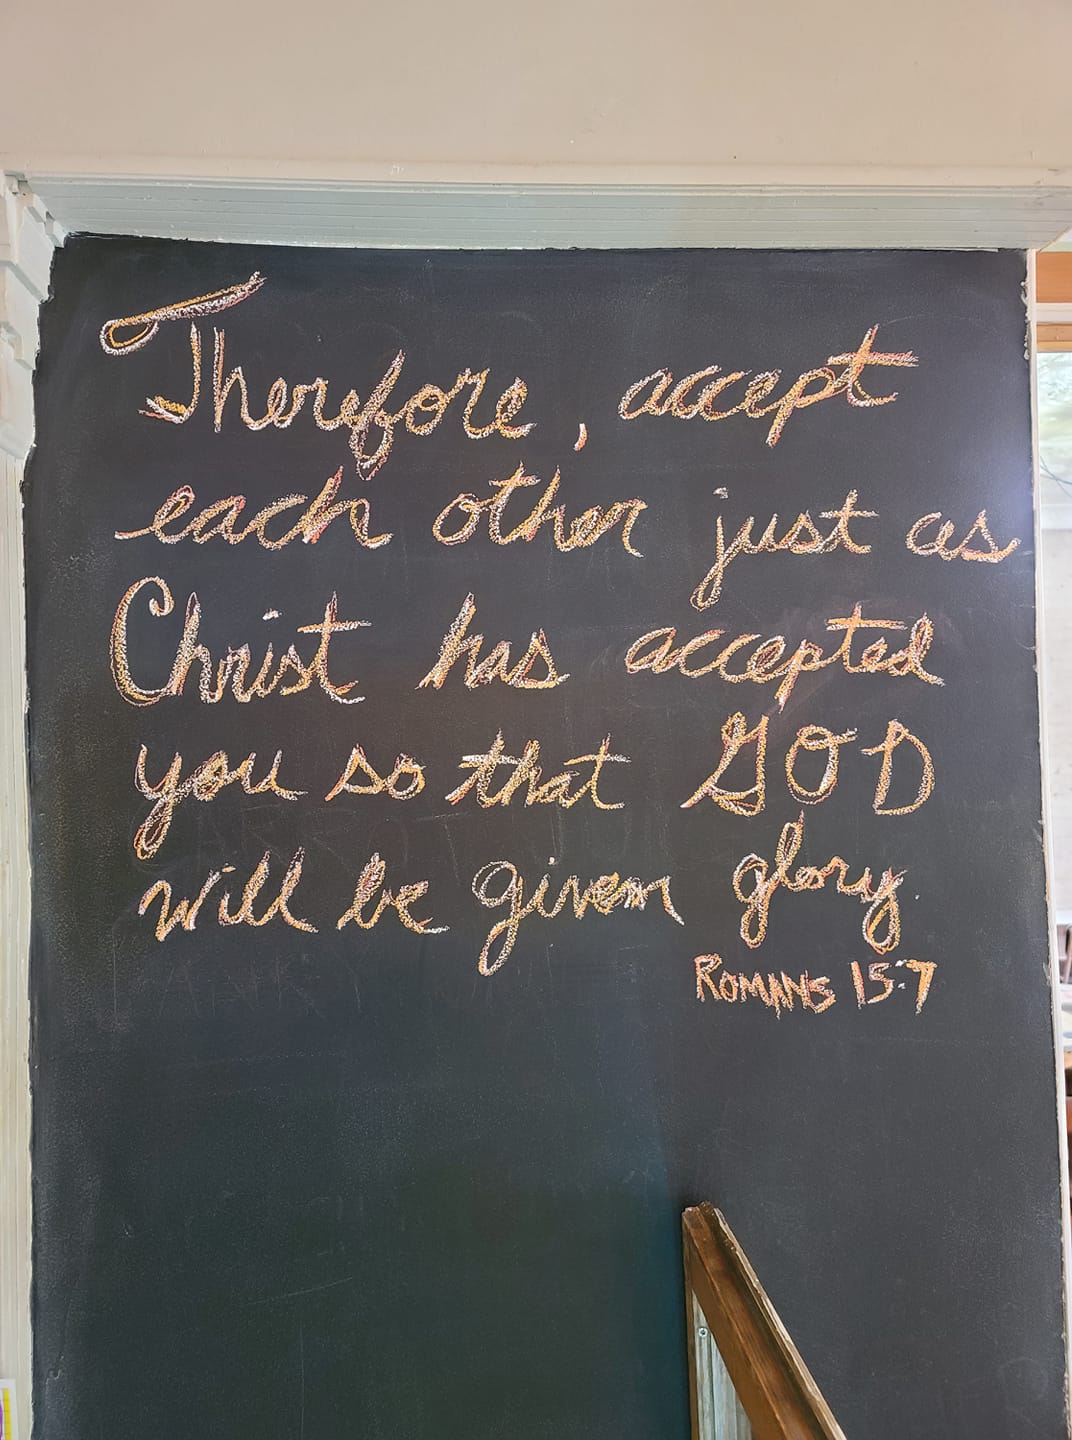 Therefore, accept
each other just as
Christ has accepted
you so that GOD
will be given glory.
ROMANS 15:7